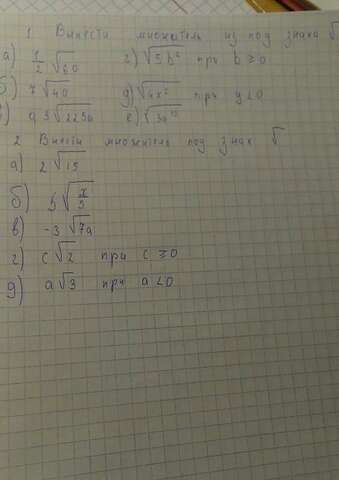 1 Вынести множитель из под знака √
а) 1/2 √60 г) √5b² при b ≥ 0
б) 7√40 д) √4x² при y < 0
0,3√225a е) √3a¹⁰
2 Внести множитель под знак √
а) 2√15
б) 5√x/5
в) -3√7a
г) c√2 при c ≥ 0
д) a√3 при a < 0